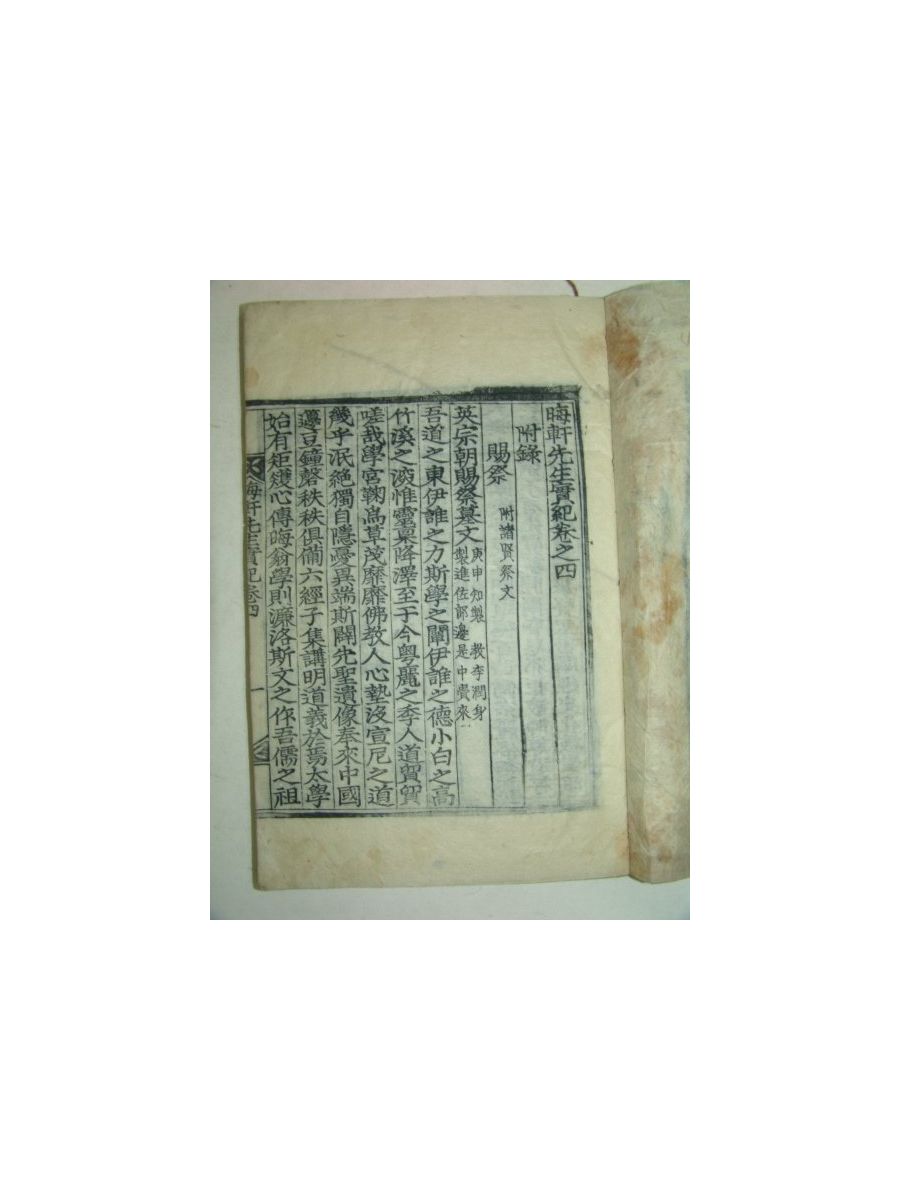 晦軒先生實紀卷之四
附錄
賜祭 附諸賢祭文
英宗朝賜祭墓文 庚申知製 教李潤身
製進佐郎邊是中賚來
吾道之東伊誰之力斯學之闡伊誰之德小白之高
竹溪之深惟靈稟降澤至于今粤麗之季人道貿貿
嗟哉學宮鞠爲草茂靡靡佛教人心墊沒宣尼之道
幾乎泯絶獨自隱憂異端斯闢先聖遺像奉來中國
籩豆鐘磬秩秩俱備六經子集講明道義於焉太學
始有矩矱心傳晦翁學則濂洛斯文之作吾儒之祖
晦軒先生實紀卷四 一